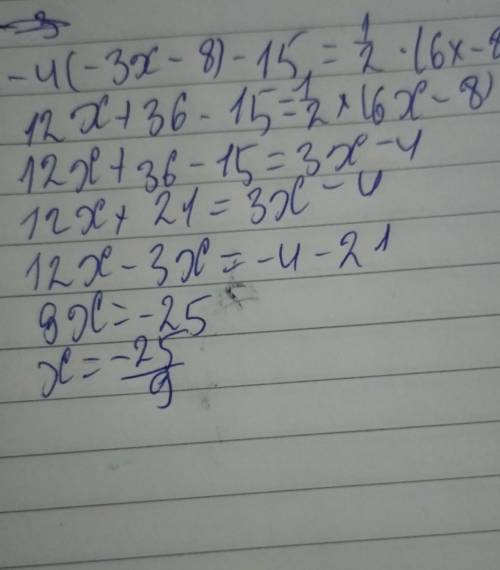 -4(-3x-8)-15=1/2·(6x-8
12x+36-15=1/2×(6x-8)
12x+36-15=3x-4
12x+21=3x-4
12x-3x=-4-21
9x=-25
x=-25/9